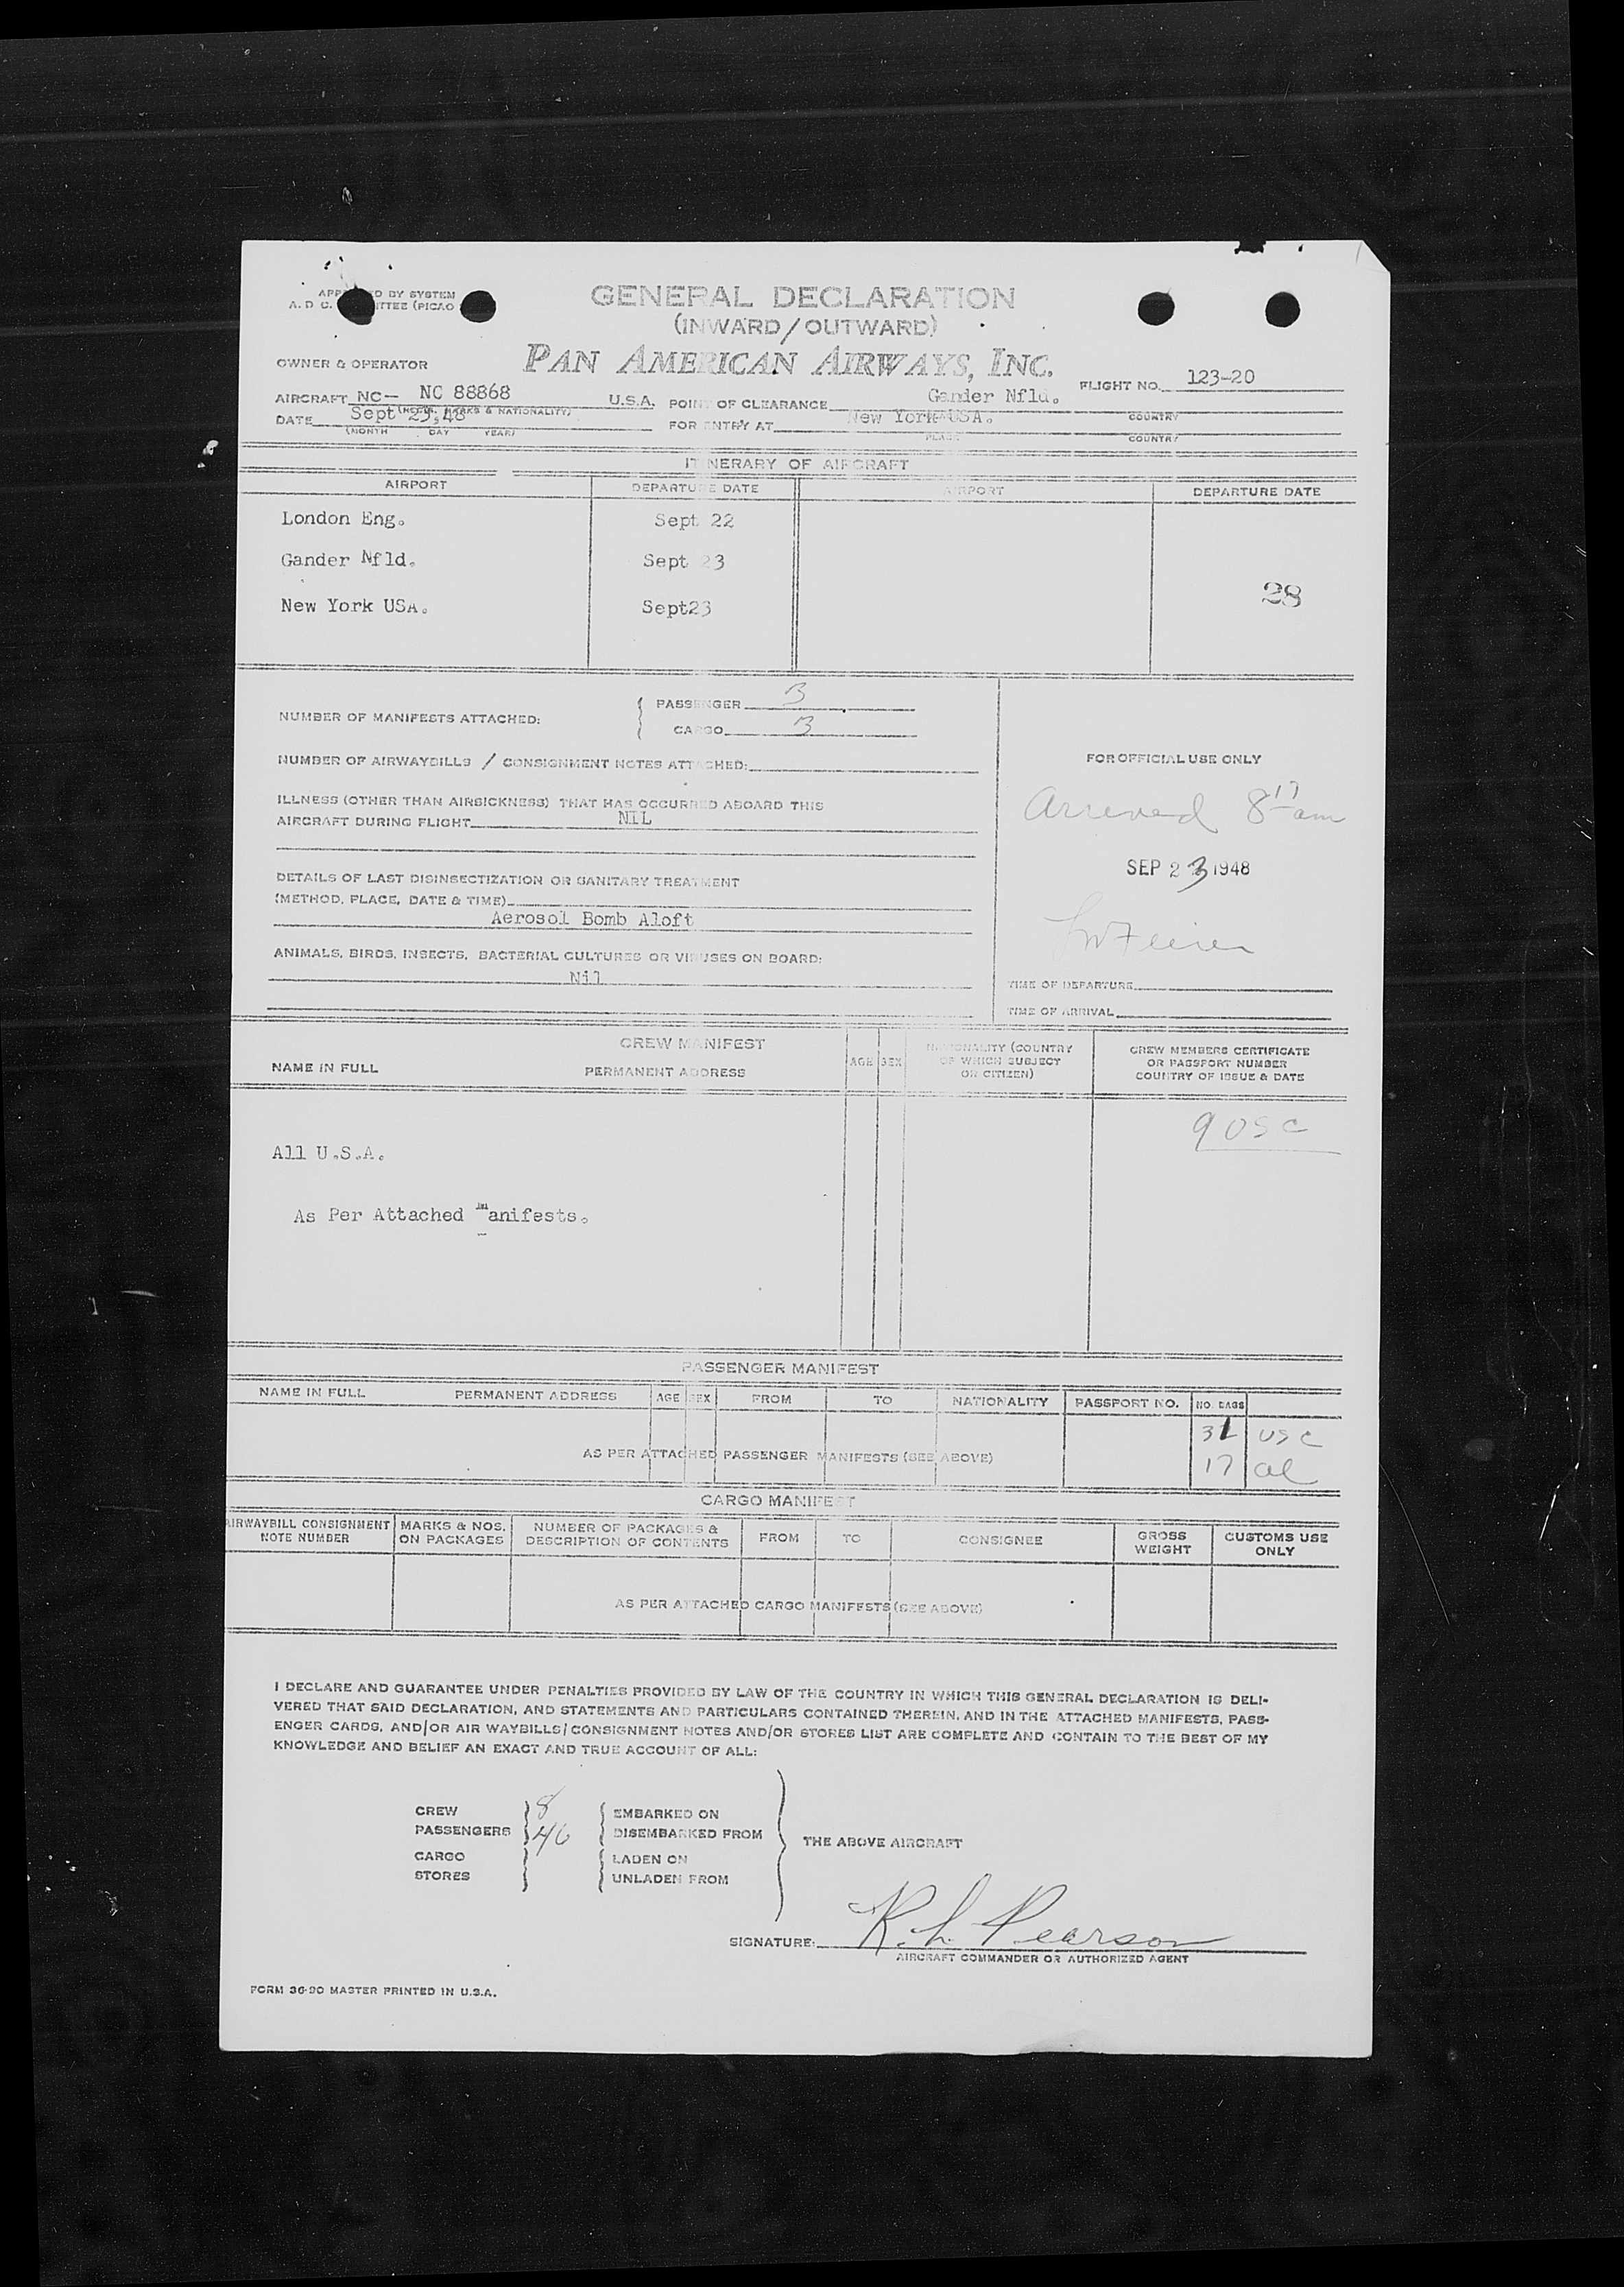 GENERAL DECLARATION
(INWARD/OUTWARD)
BY SYSTEM
A. D. C. (PICAO
OWNER & OPERATOR
PAN AMERICAN AIRWAYS, INC.
FLIGHT NO. 123-20
AIRCRAFT NC- NC 88868 U.S.A.
(REGIS. MARKS & NATIONALITY)
POINT OF CLEARANCE Gander Nfld.
COUNTRY
DATE Sept 23,48
(MONTH DAY YEAR)
FOR ENTRY AT New York USA.
PLACE COUNTRY
ITINERARY OF AIRCRAFT
AIRPORT DEPARTURE DATE AIRPORT DEPARTURE DATE
London Eng. Sept 22
Gander Nfld. Sept 23
28
New York USA. Sept23
NUMBER OF MANIFESTS ATTACHED:
PASSENGER 3
CARGO 3
NUMBER OF AIRWAYBILLS / CONSIGNMENT NOTES ATTACHED:
ILLNESS (OTHER THAN AIRSICKNESS) THAT HAS OCCURRED ABOARD THIS
AIRCRAFT DURING FLIGHT NIL
DETAILS OF LAST DISINSECTIZATION OR SANITARY TREATMENT
(METHOD, PLACE, DATE & TIME)
Aerosol Bomb Aloft
ANIMALS, BIRDS, INSECTS, BACTERIAL CULTURES OR VIRUSES ON BOARD:
Nil
FOR OFFICIAL USE ONLY
Arrived 8 17 am
SEP 23 1948
TIME OF DEPARTURE
TIME OF ARRIVAL
CREW MANIFEST
NAME IN FULL PERMANENT ADDRESS AGE SEX
NATIONALITY (COUNTRY
OF WHICH SUBJECT
OR CITIZEN)
CREW MEMBERS CERTIFICATE
OR PASSPORT NUMBER
COUNTRY OF ISSUE & DATE
9 USC
All U.S.A.
As Per Attached manifests.
PASSENGER MANIFEST
NAME IN FULL PERMANENT ADDRESS AGE SEX FROM TO NATIONALITY PASSPORT NO. NO. BAGS
31 USC
AS PER ATTACHED PASSENGER MANIFESTS (SEE ABOVE)
17 al
CARGO MANIFEST
AIRWAYBILL CONSIGNMENT
NOTE NUMBER
MARKS & NOS.
ON PACKAGES
NUMBER OF PACKAGES &
DESCRIPTION OF CONTENTS
FROM TO CONSIGNEE
GROSS
WEIGHT
CUSTOMS USE
ONLY
AS PER ATTACHED CARGO MANIFESTS (SEE ABOVE)
I DECLARE AND GUARANTEE UNDER PENALTIES PROVIDED BY LAW OF THE COUNTRY IN WHICH THIS GENERAL DECLARATION IS DELI-
VERED THAT SAID DECLARATION, AND STATEMENTS AND PARTICULARS CONTAINED THEREIN, AND IN THE ATTACHED MANIFESTS, PASS-
ENGER CARDS, AND/OR AIR WAYBILLS/CONSIGNMENT NOTES AND/OR STORES LIST ARE COMPLETE AND CONTAIN TO THE BEST OF MY
KNOWLEDGE AND BELIEF AN EXACT AND TRUE ACCOUNT OF ALL:
CREW 8 EMBARKED ON
PASSENGERS 46 DISEMBARKED FROM
THE ABOVE AIRCRAFT
CARGO LADEN ON
STORES UNLADEN FROM
SIGNATURE: R. L. Pearson
AIRCRAFT COMMANDER OR AUTHORIZED AGENT
FORM 36-90 MASTER PRINTED IN U.S.A.